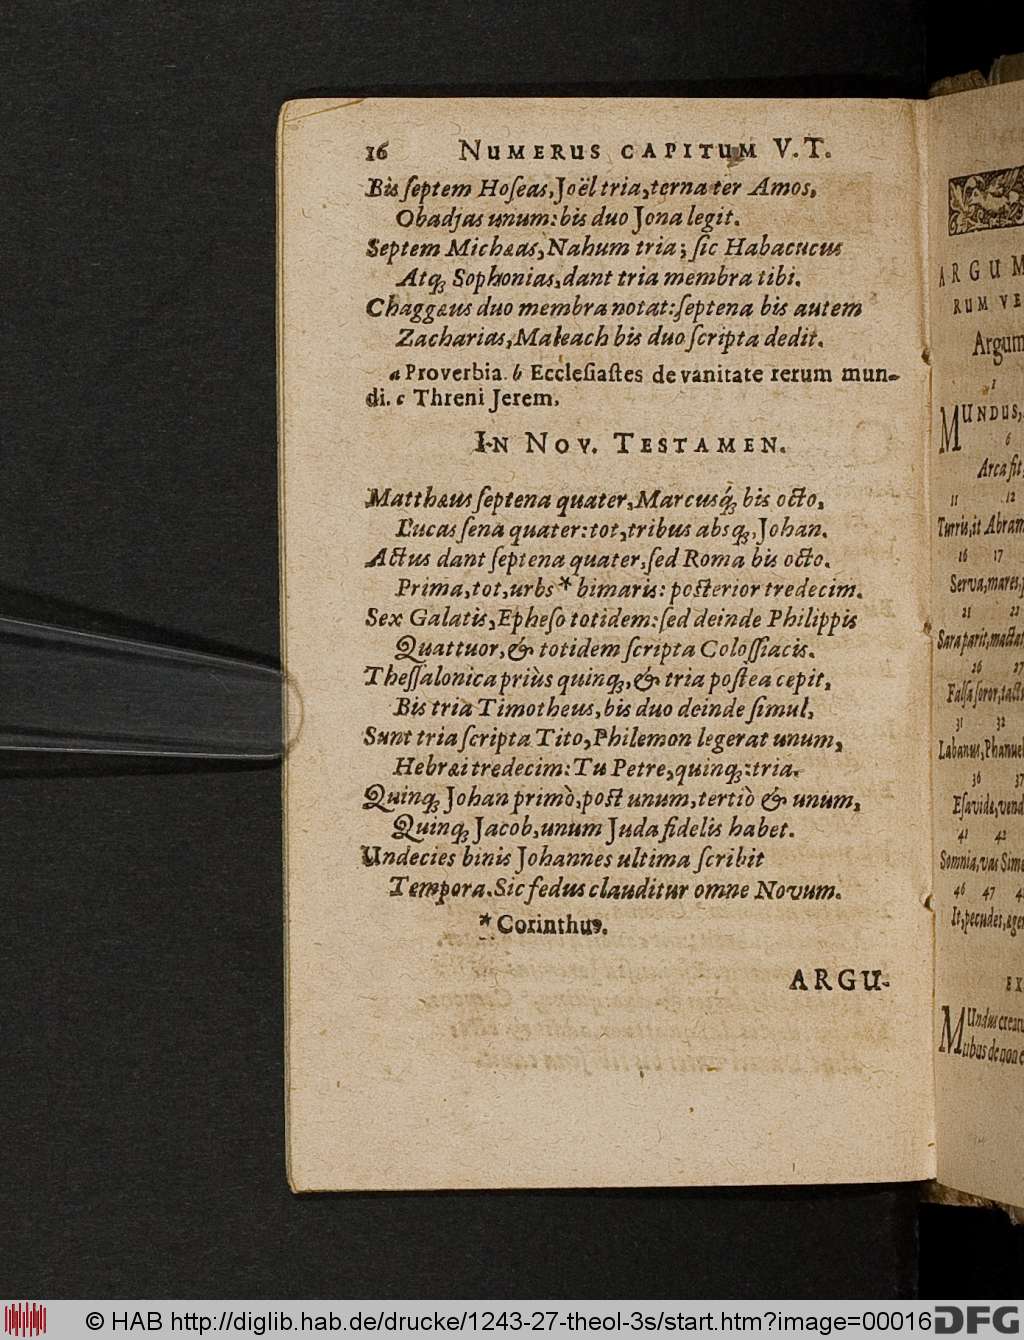 16 NUMERUS CAPITUM V.T.
Bis ſeptem Hoſeas, Joël tria, terna ter Amos,
Obadjas unum: bis duo Jona legit.
Septem Michæas, Nahum tria; ſic Habacucus
Atq; Sophonias, dant tria membra tibi.
Chaggæus duo membra notat: ſeptena bis autem
Zacharias, Maleach bis duo ſcripta dedit.
a Proverbia. b Eccleſiaſtes de vanitate rerum mun-
di. c Threni Jerem.
IN NOV. TESTAMEN.
Matthæus ſeptena quater, Marcusq́; bis octo,
Lucas ſena quater: tot, tribus absq;, Johan.
Actus dant ſeptena quater, ſed Roma bis octo.
Prima, tot, urbs * bimaris: poſterior tredecim.
Sex Galatis, Epheſo totidem: ſed deinde Philippis
Quattuor, & totidem ſcripta Coloſſiacis.
Theſſalonica priùs quinq;, & tria poſtea cepit,
Bis tria Timotheus, bis duo deinde ſimul,
Sunt tria ſcripta Tito, Philemon legerat unum,
Hebræi tredecim: Tu Petre, quinq;: tria.
Quinq; Johan primò, poſt unum, tertiò & unum,
Quinq; Jacob, unum Juda fidelis habet.
Undecies binis Johannes ultima ſcribit
Tempora. Sic fedus clauditur omne Novum.
* Corinthus.
ARGU-
ARGUM
RUM VE
Argum
1
MUNDUS,
6
Arca fit,
11 12
Turris, it Abram
16 17
Serva, mares,
21 22
Sara parit, mactat
26 27
Falſa ſoror, tact
31 32
Labanus, Phanuel
36 37
Eſavidæ, vend
41 42
Somnia, vas Sime
46 47
It, pecudes, ager
EX
MUndus creatu
© HAB http://diglib.hab.de/drucke/1243-27-theol-3s/start.htm?image=00016
DFG